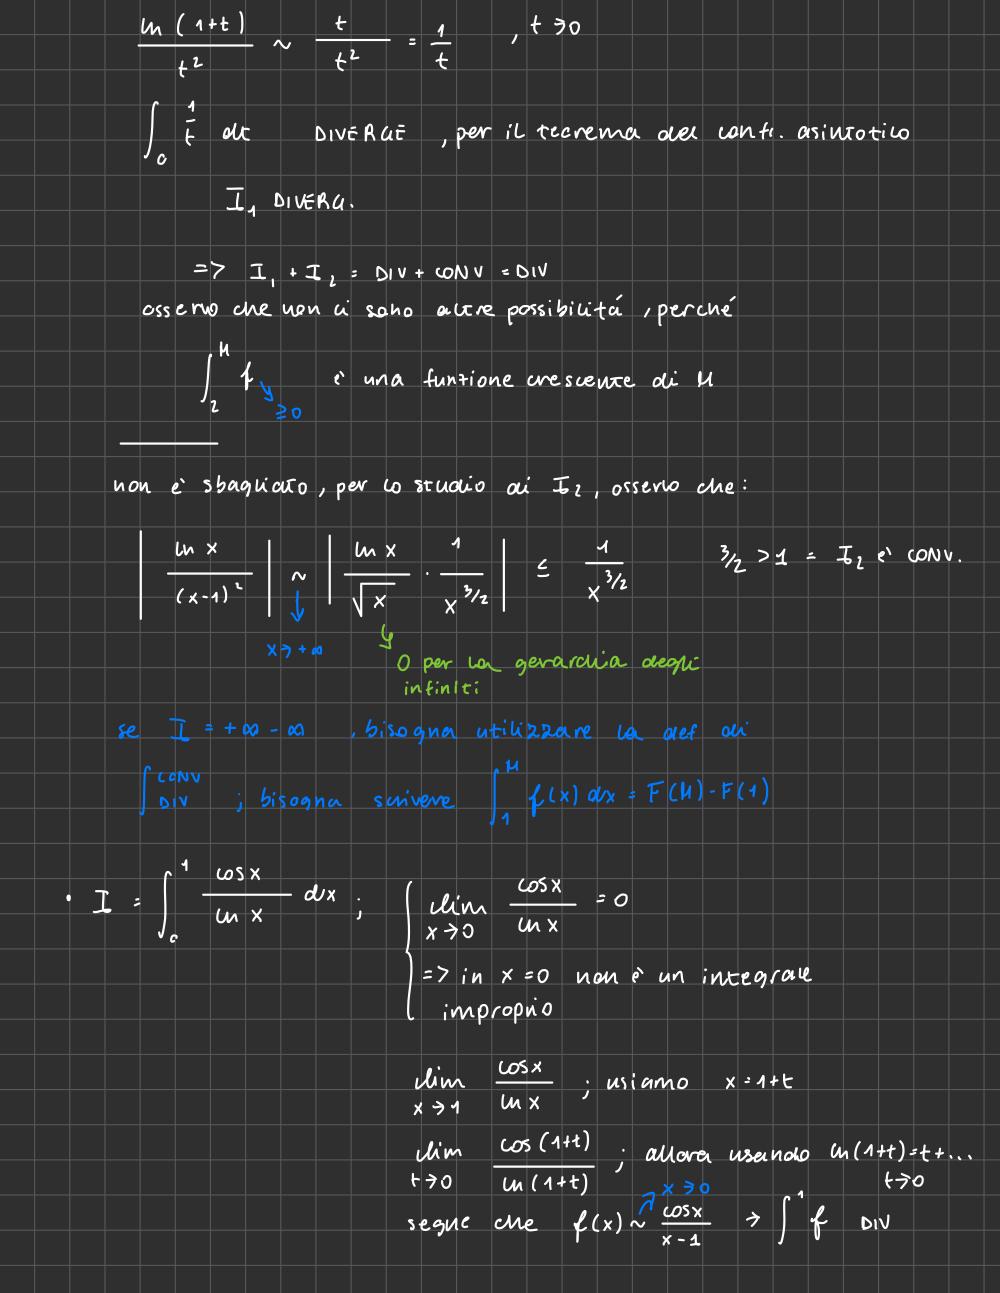 ln(1+t)/t² ~ t/t² = 1/t , t→0
∫₀ 1/t dt DIVERGE , per il teorema del conf. asintotico
I₁ DIVERG.
=> I₁ + I₂ = DIV + CONV = DIV
osservo che non ci sono altre possibilitá , perché
∫₂^M f è una funzione crescente di M
≥0
non è sbagliato, per lo studio di I₂, osservo che:
|ln x/(x-1)²| ~ |ln x/√x · 1/x^(3/2)| ≤ 1/x^(3/2) 3/2 > 1 = I₂ è CONV.
x→+∞
0 per la gerarchia degli
infiniti
se I = +∞ - ∞ , bisogna utilizzare la def di
∫ CONV DIV ; bisogna scrivere ∫₁^M f(x) dx = F(M) - F(1)
• I = ∫₀¹ cos x/ln x dx ; { lim x→0 cos x/ln x = 0
=> in x = 0 non è un integrale
improprio
lim x→1 cos x/ln x ; usiamo x = 1+t
lim t→0 cos(1+t)/ln(1+t) ; allora usando ln(1+t)=t+... t→0
x→0
segue che f(x) ~ cos x/x-1 → ∫¹ f DIV